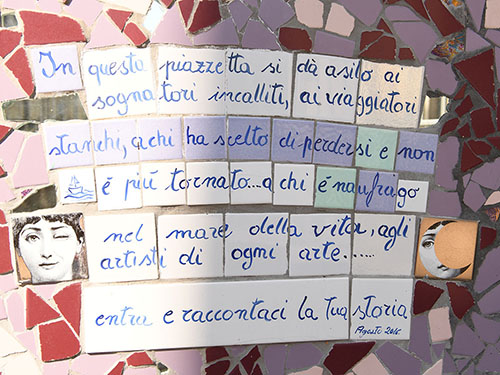 In questa piazzetta si dà asilo ai
sognatori incalliti, ai viaggiatori
stanchi, a chi ha scelto di perdersi e non
é più tornato...a chi é naufrago
nel mare della vita, agli
artisti di ogni arte......
entra e raccontaci la tua storia
Agosto 2016